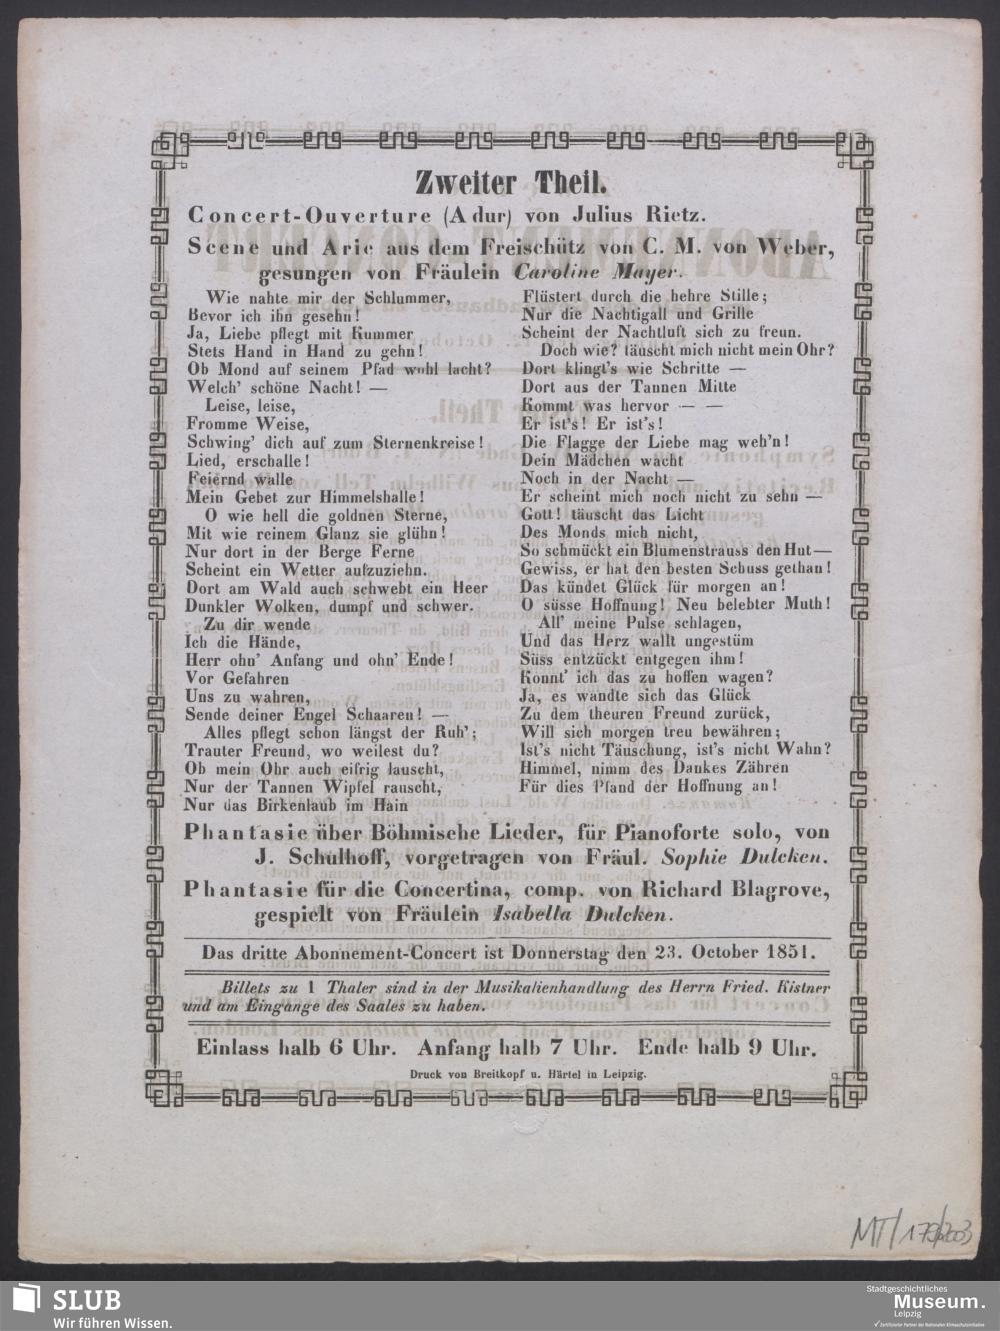 Zweiter Theil.
Concert-Ouverture (A dur) von Julius Rietz.
Scene und Arie aus dem Freischütz von C. M. von Weber,
gesungen von Fräulein Caroline Mayer.
Wie nahte mir der Schlummer,
Bevor ich ihn gesehn!
Ja, Liebe pflegt mit Kummer
Stets Hand in Hand zu gehn!
Ob Mond auf seinem Pfad wohl lacht?
Welch' schöne Nacht! —
Leise, leise,
Fromme Weise,
Schwing' dich auf zum Sternenkreise!
Lied, erschalle!
Feiernd walle
Mein Gebet zur Himmelshalle!
O wie hell die goldnen Sterne,
Mit wie reinem Glanz sie glühn!
Nur dort in der Berge Ferne
Scheint ein Wetter aufzuziehn.
Dort am Wald auch schwebt ein Heer
Dunkler Wolken, dumpf und schwer.
Zu dir wende
Ich die Hände,
Herr ohn' Anfang und ohn' Ende!
Vor Gefahren
Uns zu wahren,
Sende deiner Engel Schaaren! —
Alles pflegt schon längst der Ruh';
Trauter Freund, wo weilest du?
Ob mein Ohr auch eifrig lauscht,
Nur der Tannen Wipfel rauscht,
Nur das Birkenlaub im Hain
Flüstert durch die hehre Stille;
Nur die Nachtigall und Grille
Scheint der Nachtluft sich zu freun.
Doch wie? täuscht mich nicht mein Ohr?
Dort klingt's wie Schritte —
Dort aus der Tannen Mitte
Kommt was hervor — —
Er ist's! Er ist's!
Die Flagge der Liebe mag weh'n!
Dein Mädchen wacht
Noch in der Nacht —
Er scheint mich noch nicht zu sehn —
Gott! täuscht das Licht
Des Monds mich nicht,
So schmückt ein Blumenstrauss den Hut—
Gewiss, er hat den besten Schuss gethan!
Das kündet Glück für morgen an!
O süsse Hoffnung! Neu belebter Muth!
All' meine Pulse schlagen,
Und das Herz wallt ungestüm
Süss entzückt entgegen ihm!
Konnt' ich das zu hoffen wagen?
Ja, es wandte sich das Glück
Zu dem theuren Freund zurück,
Will sich morgen treu bewähren;
Ist's nicht Täuschung, ist's nicht Wahn?
Himmel, nimm des Dankes Zähren
Für dies Pfand der Hoffnung an!
Phantasie über Böhmische Lieder, für Pianoforte solo, von
J. Schulhoff, vorgetragen von Fräul. Sophie Dulcken.
Phantasie für die Concertina, comp. von Richard Blagrove,
gespielt von Fräulein Isabella Dulcken.
Das dritte Abonnement-Concert ist Donnerstag den 23. October 1851.
Billets zu 1 Thaler sind in der Musikalienhandlung des Herrn Fried. Kistner
und am Eingange des Saales zu haben.
Einlass halb 6 Uhr. Anfang halb 7 Uhr. Ende halb 9 Uhr.
Druck von Breitkopf u. Härtel in Leipzig.
SLUB
Wir führen Wissen.
Stadtgeschichtliches
Museum.
Leipzig
Zertifizierter Partner der Nationalen Klimaschutzinitiative